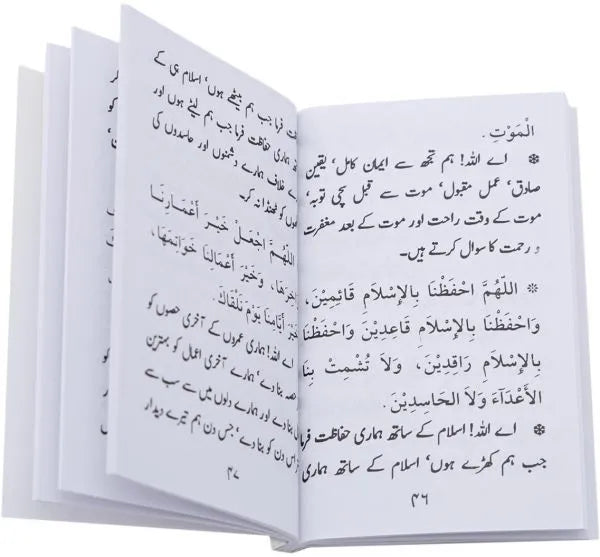 الْمَوْتِ.
❇ اے اللہ! ہم تجھ سے ایمان کامل‘ یقین
صادق‘ عمل مقبول‘ موت سے قبل سچی توبہ‘
موت کے وقت راحت اور موت کے بعد مغفرت
و رحمت کا سوال کرتے ہیں۔
❇ اللّٰهُمَّ احْفَظْنَا بِالْإِسْلَامِ قَائِمِيْنَ،
وَاحْفَظْنَا بِالْإِسْلَامِ قَاعِدِيْنَ وَاحْفَظْنَا
بِالْإِسْلَامِ رَاقِدِيْنَ، وَلَا تُشْمِتْ بِنَا
الْأَعْدَآءَ وَلَا الْحَاسِدِيْنَ.
❇ اے اللہ! اسلام کے ساتھ ہماری حفاظت فرما
جب ہم کھڑے ہوں‘ اسلام کے ساتھ ہماری
۴۶
فرما جب ہم بیٹھے ہوں‘ اسلام ہی کے
ہماری حفاظت فرما جب ہم لیٹے ہوں اور
خلاف ہمارے دشمنوں اور حاسدوں کی
کو ٹھنڈا نہ کر۔
اللّٰهُمَّ اجْعَلْ خَيْرَ أَعْمَارِنَا
وَخَيْرَ أَعْمَالِنَا خَوَاتِمَهَا،
خَيْرَ أَيَّامِنَا يَوْمَ نَلْقَاكَ.
اے اللہ! ہماری عمروں کے آخری حصوں کو
بنا دے‘ ہمارے آخری اعمال کو بہترین
دے اور ہمارے دنوں میں سے سب سے
اس دن کو بنا دے‘ جس دن ہم تیرے دیدار
۴۷